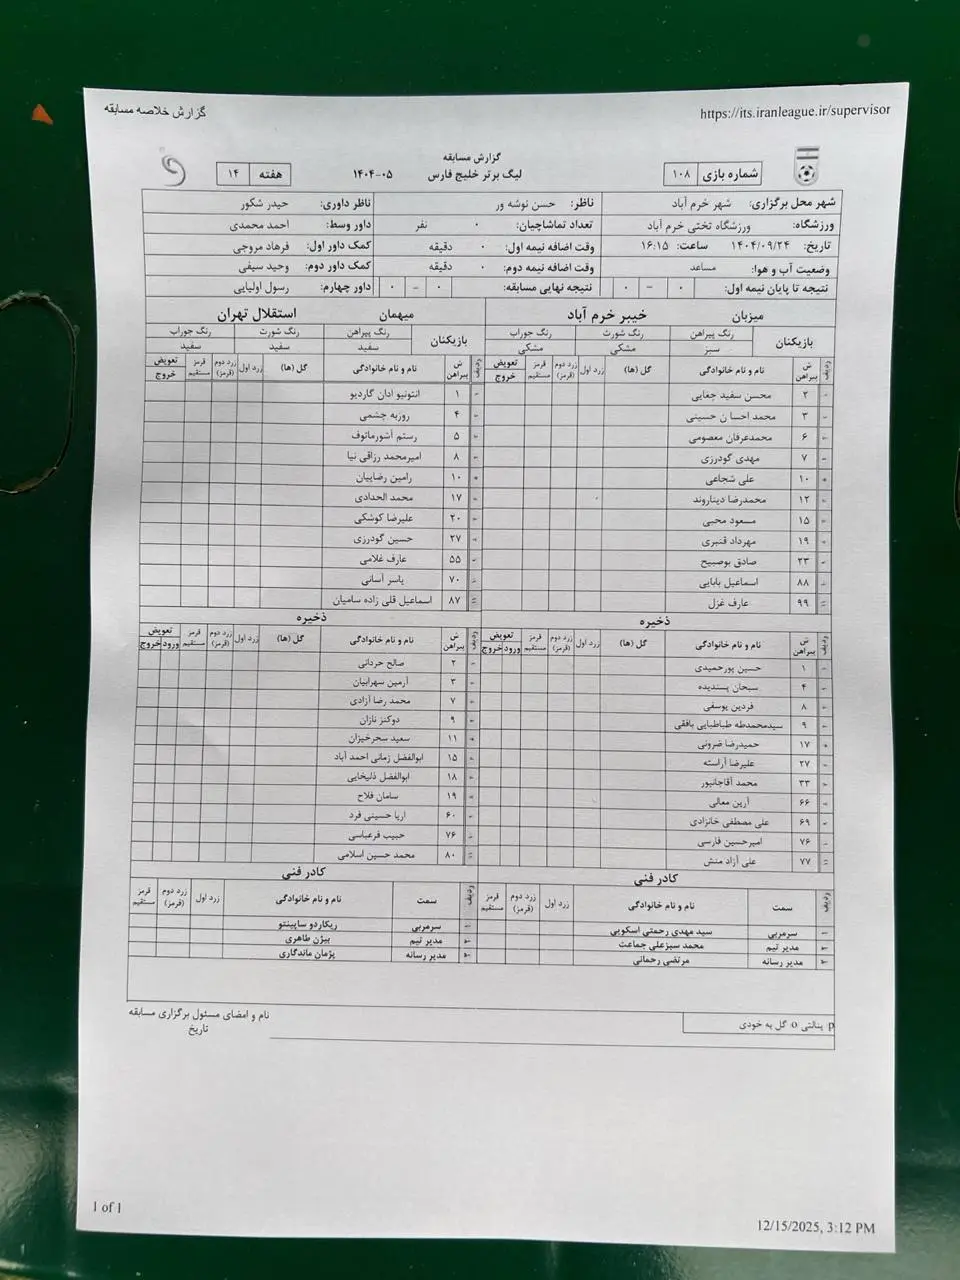 گزارش خلاصه مسابقه https://its.iranleague.ir/supervisor
گزارش مسابقه
شماره بازی ۱۰۸ لیگ برتر خلیج فارس ۱۴۰۴-۰۵ هفته ۱۴
شهر محل برگزاری: شهر خرم آباد ناظر: حسن نوشه ور ناظر داوری: حیدر شکور
ورزشگاه: ورزشگاه تختی خرم آباد تعداد تماشاچیان: ۰ نفر داور وسط: احمد محمدی
تاریخ: ۱۴۰۴/۰۹/۲۴ ساعت: ۱۶:۱۵ وقت اضافه نیمه اول: ۰ دقیقه کمک داور اول: فرهاد مروجی
وضعیت آب و هوا: مساعد وقت اضافه نیمه دوم: ۰ دقیقه کمک داور دوم: وحید سیفی
نتیجه تا پایان نیمه اول: ۰ - ۰ نتیجه نهایی مسابقه: ۰ - ۰ داور چهارم: رسول اولیایی
میزبان خیبر خرم آباد میهمان استقلال تهران
بازیکنان رنگ پیراهن رنگ شورت رنگ جوراب بازیکنان رنگ پیراهن رنگ شورت رنگ جوراب
سبز مشکی مشکی سفید سفید سفید
ردیف ش پیراهن نام و نام خانوادگی گل (ها) زرد اول زرد دوم (قرمز) قرمز مستقیم تعویض خروج ردیف ش پیراهن نام و نام خانوادگی گل (ها) زرد اول زرد دوم (قرمز) قرمز مستقیم تعویض خروج
۲ محسن سفید چغایی ۱ انتونیو ادان گاردیو
۳ محمد احسا ن حسینی ۴ روزبه چشمی
۶ محمدعرفان معصومی ۵ رستم آشورماتوف
۷ مهدی گودرزی ۸ امیرمحمد رزاقی نیا
۱۰ علی شجاعی ۱۰ رامین رضاییان
۱۲ محمدرضا دیناروند ۱۷ محمد الحدادی
۱۵ مسعود محبی ۲۰ علیرضا کوشکی
۱۹ مهرداد قنبری ۲۷ حسین گودرزی
۲۳ صادق بوصبیح ۵۵ عارف غلامی
۸۸ اسماعیل بابایی ۷۰ یاسر آسانی
۹۹ عارف غزل ۸۷ اسماعیل قلی زاده سامیان
ذخیره ذخیره
ردیف ش پیراهن نام و نام خانوادگی گل (ها) زرد اول زرد دوم (قرمز) قرمز مستقیم تعویض ورود خروج ردیف ش پیراهن نام و نام خانوادگی گل (ها) زرد اول زرد دوم (قرمز) قرمز مستقیم تعویض ورود خروج
۱ حسین پورحمیدی ۲ صالح حردانی
۴ سبحان پسندیده ۳ آرمین سهرابیان
۸ فردین یوسفی ۷ محمد رضا آزادی
۹ سیدمحمدطه طباطبایی بافقی ۹ دوکنز نازان
۱۷ حمیدرضا ضرونی ۱۱ سعید سحرخیزان
۲۷ علیرضا آراسته ۱۵ ابوالفضل زمانی احمد آباد
۳۳ محمد آقاجانپور ۱۸ ابوالفضل ذلیخایی
۶۶ آرین معالی ۱۹ سامان فلاح
۶۹ علی مصطفی خانزادی ۶۰ اریا حسینی فرد
۷۶ امیرحسین فارسی ۷۶ حبیب فرعباسی
۷۷ علی آزاد منش ۸۰ محمد حسین اسلامی
کادر فنی کادر فنی
ردیف سمت نام و نام خانوادگی زرد اول زرد دوم (قرمز) قرمز مستقیم ردیف سمت نام و نام خانوادگی زرد اول زرد دوم (قرمز) قرمز مستقیم
سرمربی سید مهدی رحمتی اسکویی سرمربی ریکاردو ساپینتو
مدیر تیم محمد سبزعلی جماعت مدیر تیم بیژن طاهری
۳ مدیر رسانه مرتضی رحمانی ۳ مدیر رسانه پژمان ماندگاری
p پنالتی o گل به خودی نام و امضای مسئول برگزاری مسابقه
تاریخ
1 of 1 12/15/2025, 3:12 PM